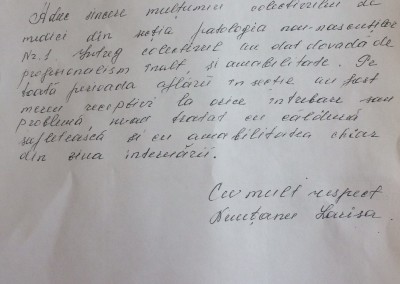 Aduc sincere mulțumiri colectivului de
medici din secția patologia nou-născuților
Nr. 1 Întreg colectivul au dat dovadă de
profesionalism înalt și amabilitate. Pe
toată perioada aflării în secție au fost
mereu receptivi la orice întrebare sau
problemă ne-au tratat cu căldură
sufletească și cu amabilitatea chiar
din ziua internării.
Cu mult respect